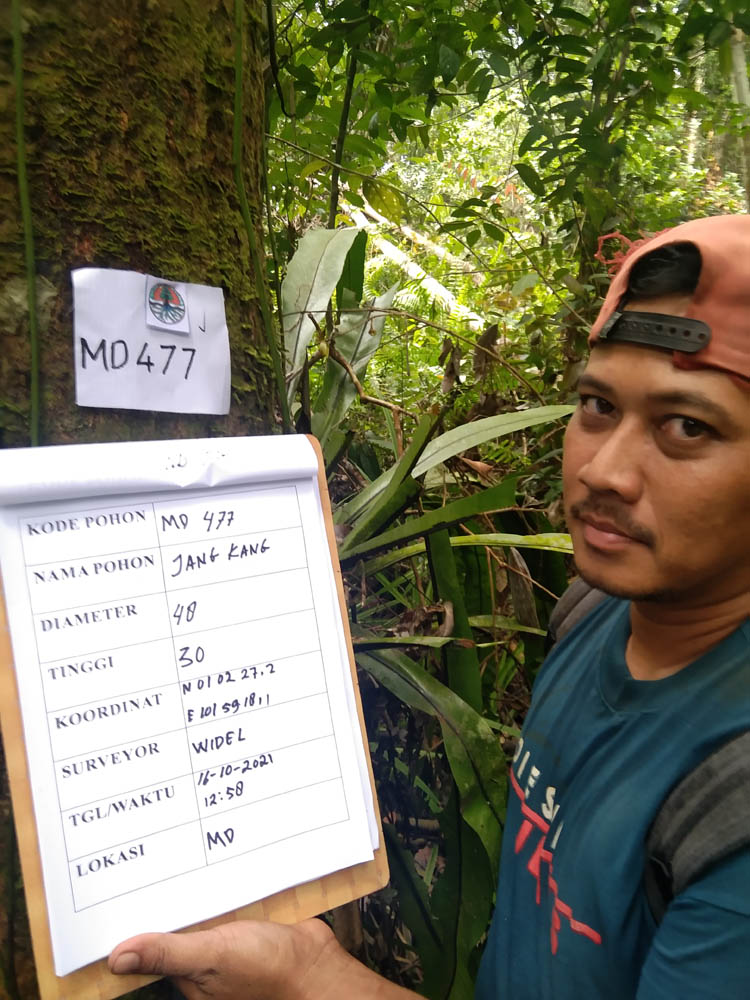 MD 477
KODE POHON MD 477
NAMA POHON JANG KANG
DIAMETER 48
TINGGI 30
KOORDINAT N 01 02 27,2
E 101 59 18,1
SURVEYOR WIDEL
TGL/WAKTU 16-10-2021
12:58
LOKASI MD